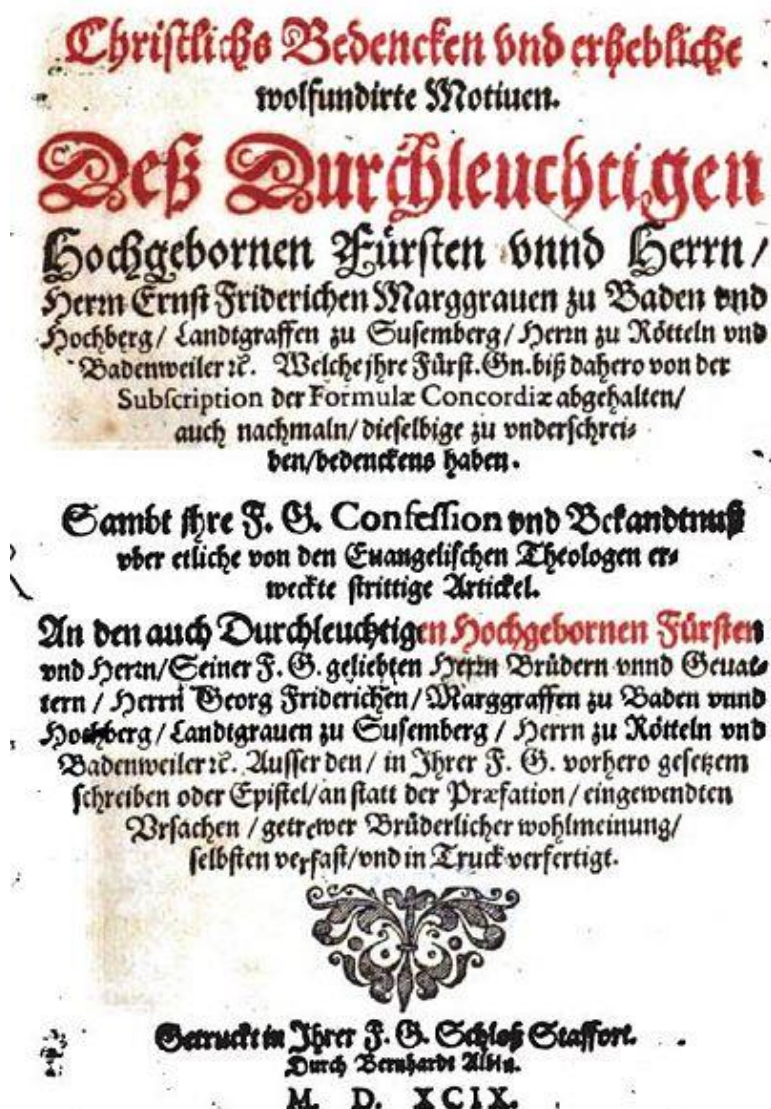 Christlichs Bedencken vnd erhebliche
wolfundirte Motiuen.
Deß Durchleuchtigen
Hochgebornen Fürsten vnnd Herrn/
Herrn Ernst Friderichen Marggrauen zu Baden vnd
Hochberg/ Landtgraffen zu Susemberg/ Herrn zu Rötteln vnd
Badenweiler ꝛc. Welche jhre Fürst. Gn. biß dahero von der
Subscription der Formulæ Concordiæ abgehalten/
auch nachmaln/ dieselbige zu vnderschrei-
ben/ bedenckens haben.
Sambt jhre F. G. Confession vnd Bekandtnuß
vber etliche von den Euangelischen Theologen er-
weckte strittige Artickel.
An den auch Durchleuchtigen Hochgebornen Fürsten
vnd Herrn/ Seiner F. G. geliebten Herrn Brüdern vnnd Geuat-
tern / Herrn Georg Friderichen/ Marggraffen zu Baden vnnd
Hochberg/ Landtgrauen zu Susemberg / Herrn zu Rötteln vnd
Badenweiler ꝛc. Ausser den/ in Jhrer F. G. vorhero gesetzem
schreiben oder Epistel/ an statt der Præfation/ eingewendten
Vrsachen / getrewer Brüderlicher wohlmeinung/
selbsten verfast/ vnd in Truck verfertigt.
Getruckt in Jhrer F. G. Schloß Staffort.
Durch Bernhardt Albin.
M. D. XCIX.